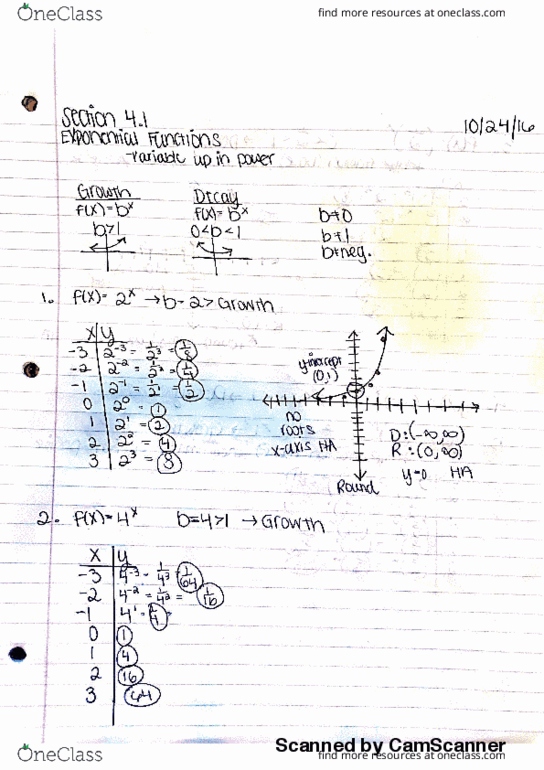 OneClass
find more resources at oneclass.com
Section 4.1
10/24/16
Exponential Functions
- variable up in power
Growth
f(x) = b^x
b>1
Decay
f(x) = b^x
0<b<1
b≠0
b≠1
b≠neg.
1. f(x) = 2^x → b = 2 > Growth
x y
-3 2^-3 = 1/2^3 = 1/8
-2 2^-2 = 1/2^2 = 1/4
-1 2^-1 = 1/2^1 = 1/2
0 2^0 = 1
1 2^1 = 2
2 2^2 = 4
3 2^3 = 8
y-intercept
(0,1)
no
roots
x-axis HA
D: (-∞,∞)
R: (0,∞)
y=0 HA
Round
2. f(x) = 4^x b=4>1 → Growth
x y
-3 4^-3 = 1/4^3 = 1/64
-2 4^-2 = 1/4^2 = 1/16
-1 4^-1 = 1/4
0 1
1 4
2 16
3 64
Scanned by CamScanner
OneClass
find more resources at oneclass.com